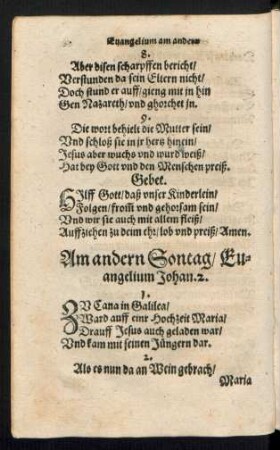 Euangelium am andern
8.
Aber disen scharpffen bericht/
Verstunden da sein Eltern nicht/
Doch stund er auff/gieng mit in hin
Gen Nazareth/vnd ghorchet jn.
9.
Die wort behielt die Mutter sein/
Vnd schloß sie in jr hertz hinein/
Jesus aber wuchs vnd wurd weiß/
Hat bey Gott vnd den Menschen preiß.
Gebet.
HIlff Gott/daß vnser Kinderlein/
Folgen/from̃ vnd gehorsam sein/
Vnd wir sie auch mit allem fleiß/
Auffziehen zu deim ehr/lob vnd preiß/Amen.
Am andern Sontag/Eu-
angelium Johan. 2.
1.
ZV Cana in Galilea/
Ward auff einr Hochzeit Maria/
Drauff Jesus auch geladen war/
Vnd kam mit seinen Jüngern dar.
2.
Als es nun da an Wein gebrach/
Maria